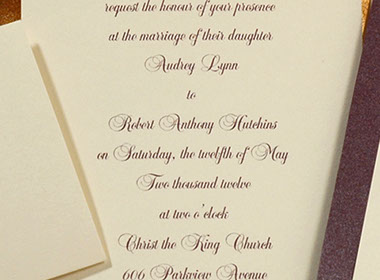 request the honour of your presence
at the marriage of their daughter
Audrey Lynn
to
Robert Anthony Hutchins
on Saturday, the twelfth of May
Two thousand twelve
at two o'clock
Christ the King Church
606 Parkview Avenue